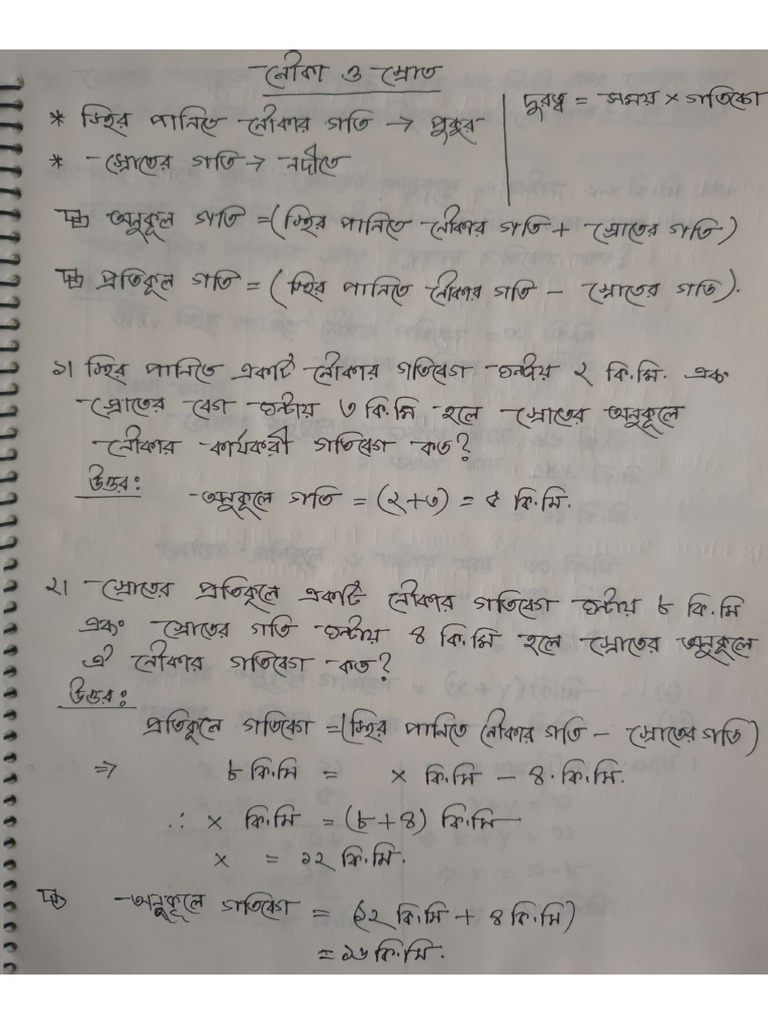 নৌকা ও স্রোত
দুরত্ব = সময় × গতিবেগ
* স্থির পানিতে নৌকার গতি → পুকুর
* স্রোতের গতি → নদীতে
অনুকূল গতি = (স্থির পানিতে নৌকার গতি + স্রোতের গতি)
প্রতিকূল গতি = (স্থির পানিতে নৌকার গতি – স্রোতের গতি).
১। স্থির পানিতে একটি নৌকার গতিবেগ ঘন্টায় ২ কি.মি. এবং
স্রোতের বেগ ঘন্টায় ৩ কি.মি হলে স্রোতের অনুকূলে
নৌকার কার্যকরী গতিবেগ কত?
উত্তর:
অনুকূলে গতি = (২+৩) = ৫ কি.মি.
২। স্রোতের প্রতিকূলে একটি নৌকার গতিবেগ ঘন্টায় ৮ কি.মি
এবং স্রোতের গতি ঘন্টায় ৪ কি.মি হলে স্রোতের অনুকূলে
ঐ নৌকার গতিবেগ কত?
উত্তর:
প্রতিকূলে গতিবেগ = (স্থির পানিতে নৌকার গতি – স্রোতের গতি)
⇒ ৮ কি.মি = x কি.মি – ৪. কি.মি.
∴ x কি.মি = (৮+৪) কি.মি
x = ১২ কি.মি.
অনুকূলে গতিবেগ = (১২ কি.মি + ৪ কি.মি)
= ১৬ কি.মি.